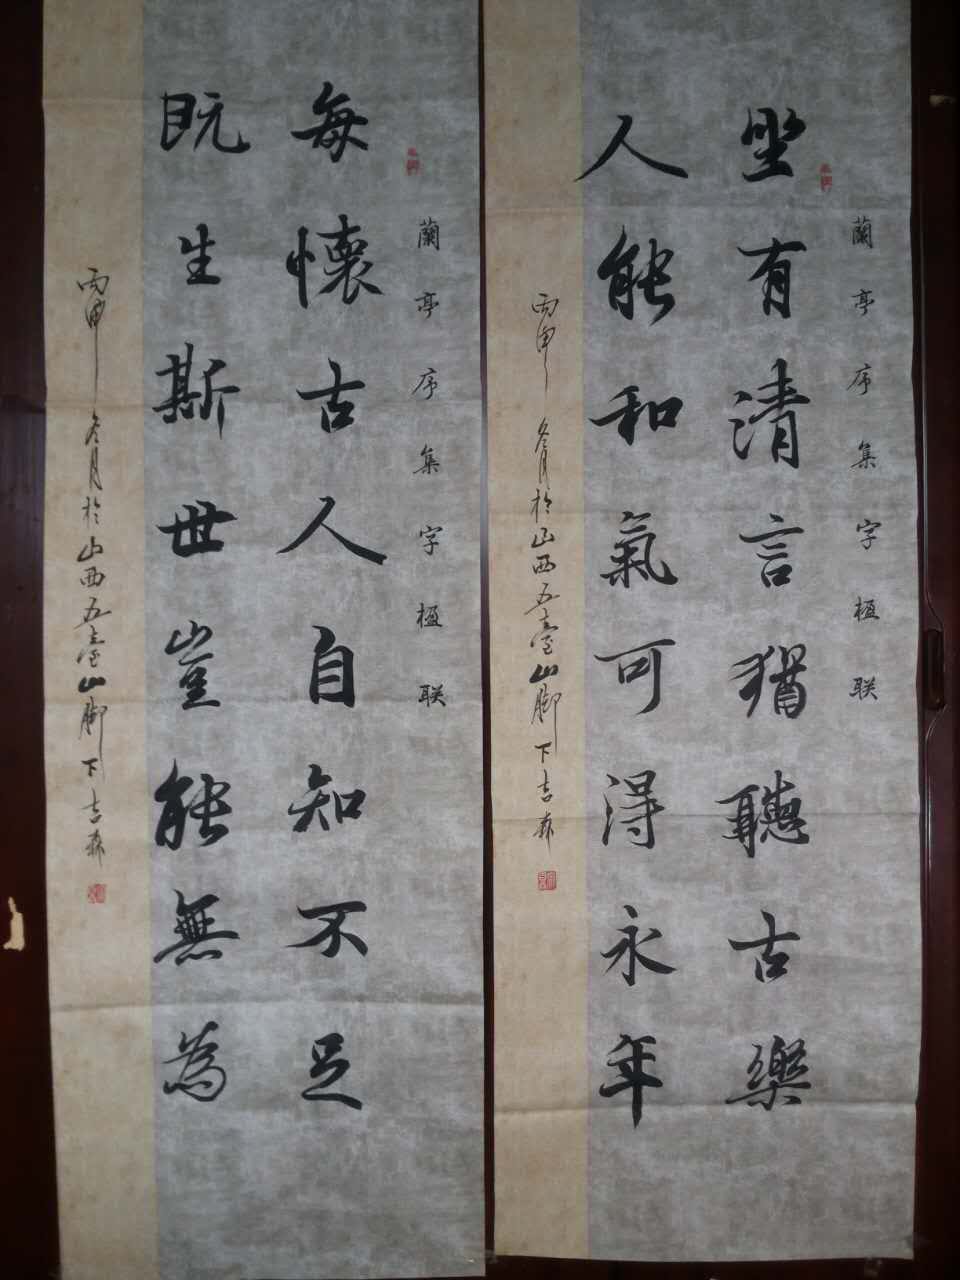 蘭亭序集字楹联
坐有清言猶聽古樂
人能和氣可得永年
丙申冬月於山西五臺山脚下吉森
蘭亭序集字楹联
每懷古人自知不足
既生斯世豈能無為
丙申冬月於山西五臺山脚下吉森